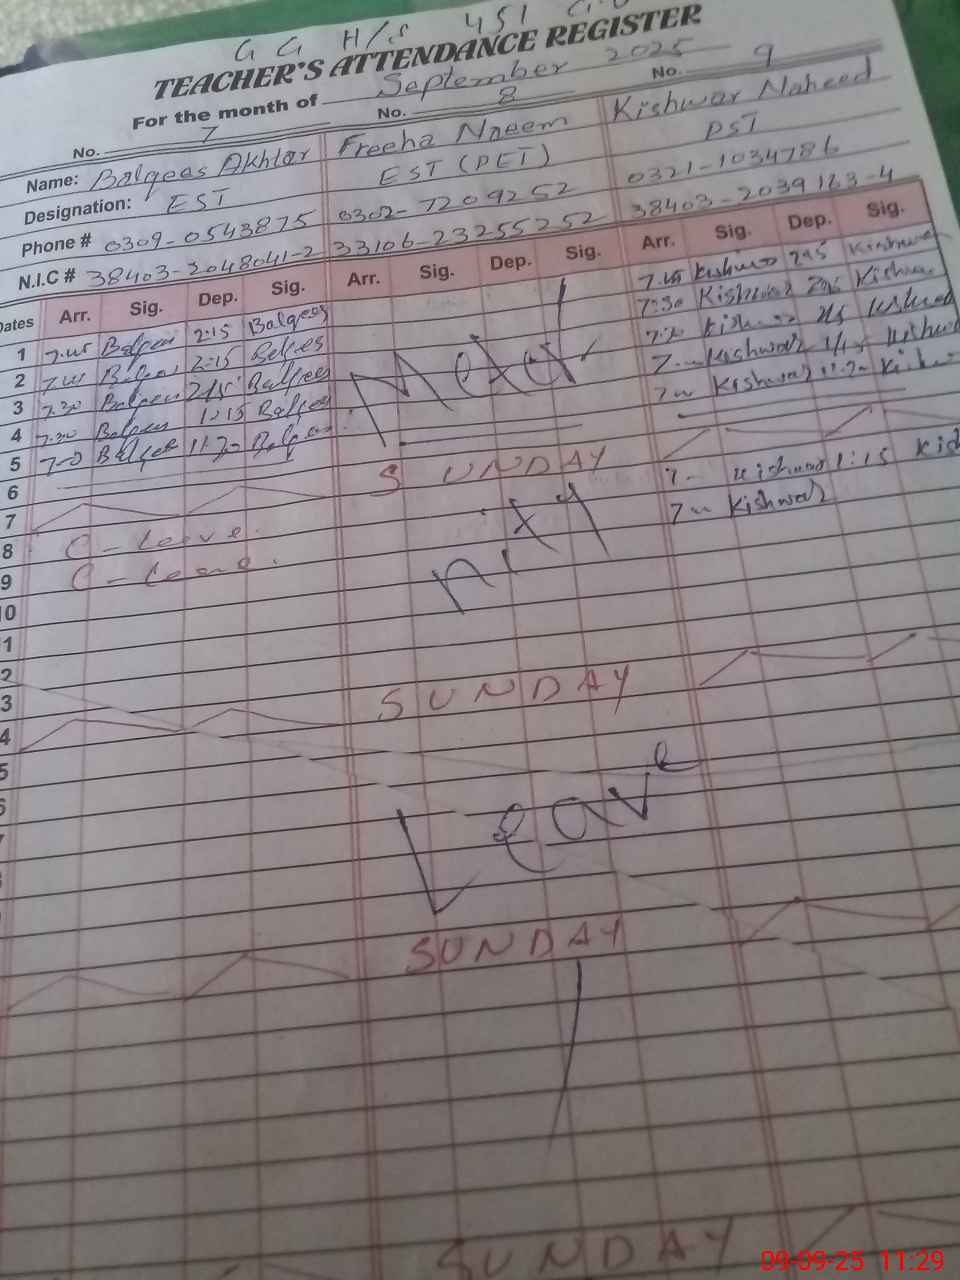 G G H/S 451
TEACHER'S ATTENDANCE REGISTER
For the month of September 2025
No. 7 No. 8 No. 9
Name: Balqees Akhtar Freeha Naeem Kishwar Naheed
Designation: EST EST (PET) PST
Phone # 0309-0543875 0302-7209252 0321-1034786
N.I.C # 38403-2048041-2 33106-23255252 38403-2039163-4
Dates Arr. Sig. Dep. Sig. Arr. Sig. Dep. Sig. Arr. Sig. Dep. Sig.
1 7:45 Balqees 2:15 Balqees Kishwar Kishwar
2 Balqees 2:15 Balqees 7:30 Kishwar Kishwar
3 7:30 Balqees 2:15 Balqees Kishwar Kishwar
4 7:30 Balqees 1:15 Balqees Kishwar Kishwar
5 Balqees 11:30 Balqees Kishwar Kishwar
6
7 SUNDAY
8 C-Leave. Kishwar 1:15
9 C-Leave. Kishwar
10
1
2
3
4 SUNDAY
5
6
Leave
SUNDAY
SUNDAY
09-09-25 11:29